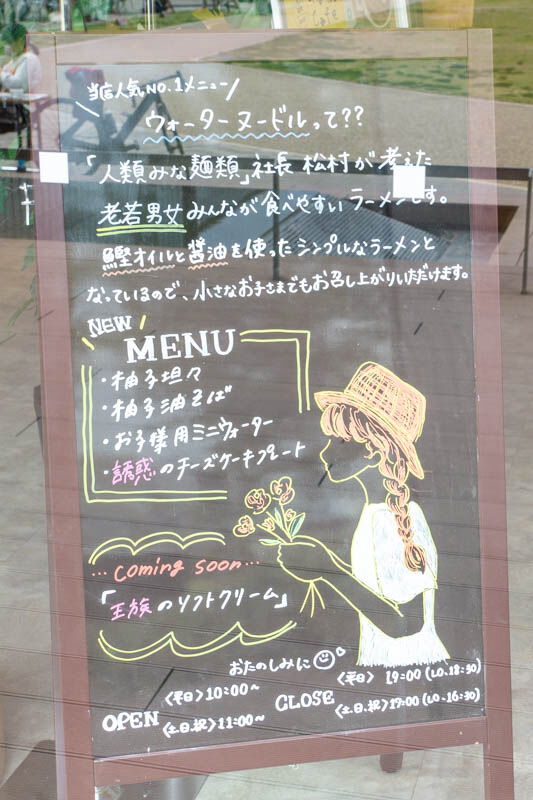 当店人気NO.1メニュー
ウォーターヌードルって??
「人類みな麺類」社長 松村が考えた
老若男女みんなが食べやすいラーメンです。
鰹オイルと醤油を使ったシンプルなラーメンと
なっているので、小さなお子さまでもお召し上がりいただけます。
NEW
MENU
・柚子坦々
・柚子油そば
・お子様用ミニウォーター
・誘惑のチーズケーキプレート
...coming soon...
「王族のソフトクリーム」
おたのしみに
OPEN
<平日>10:00~
<土日.祝>11:00~
CLOSE
<平日> 19:00 (LO.18:30)
<土日.祝>17:00 (LO.16:30)